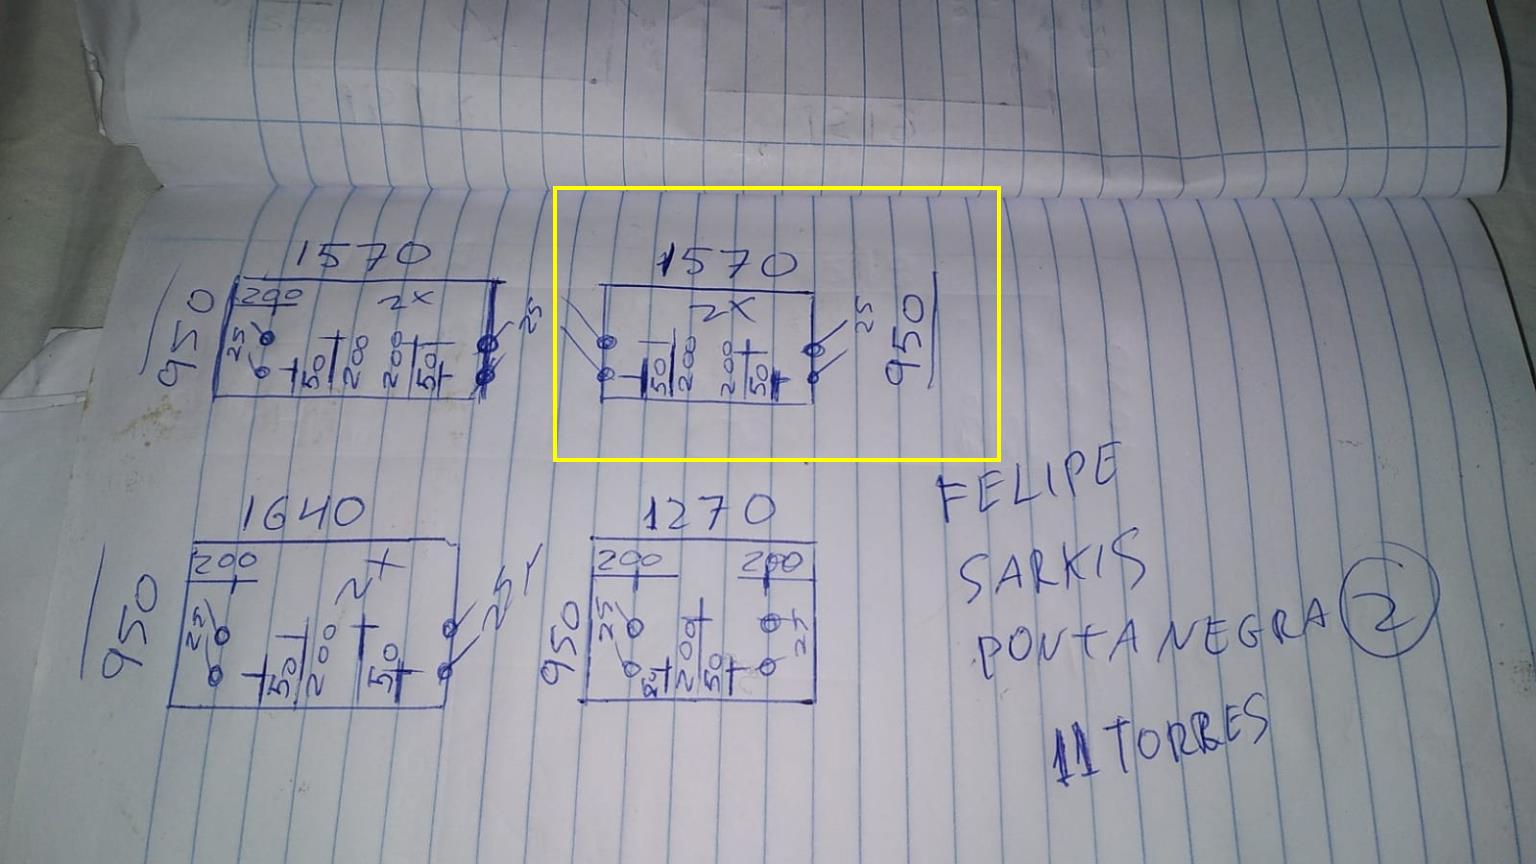 1570
950
200
2X
25
50
200
200
50
25
1570
2X
50
200
200
50
25
950
1640
950
200
2X
25
50
200
50
25
1270
950
200
200
25
50
200
50
25
FELIPE
SARKIS
PONTA NEGRA 2
11 TORRES